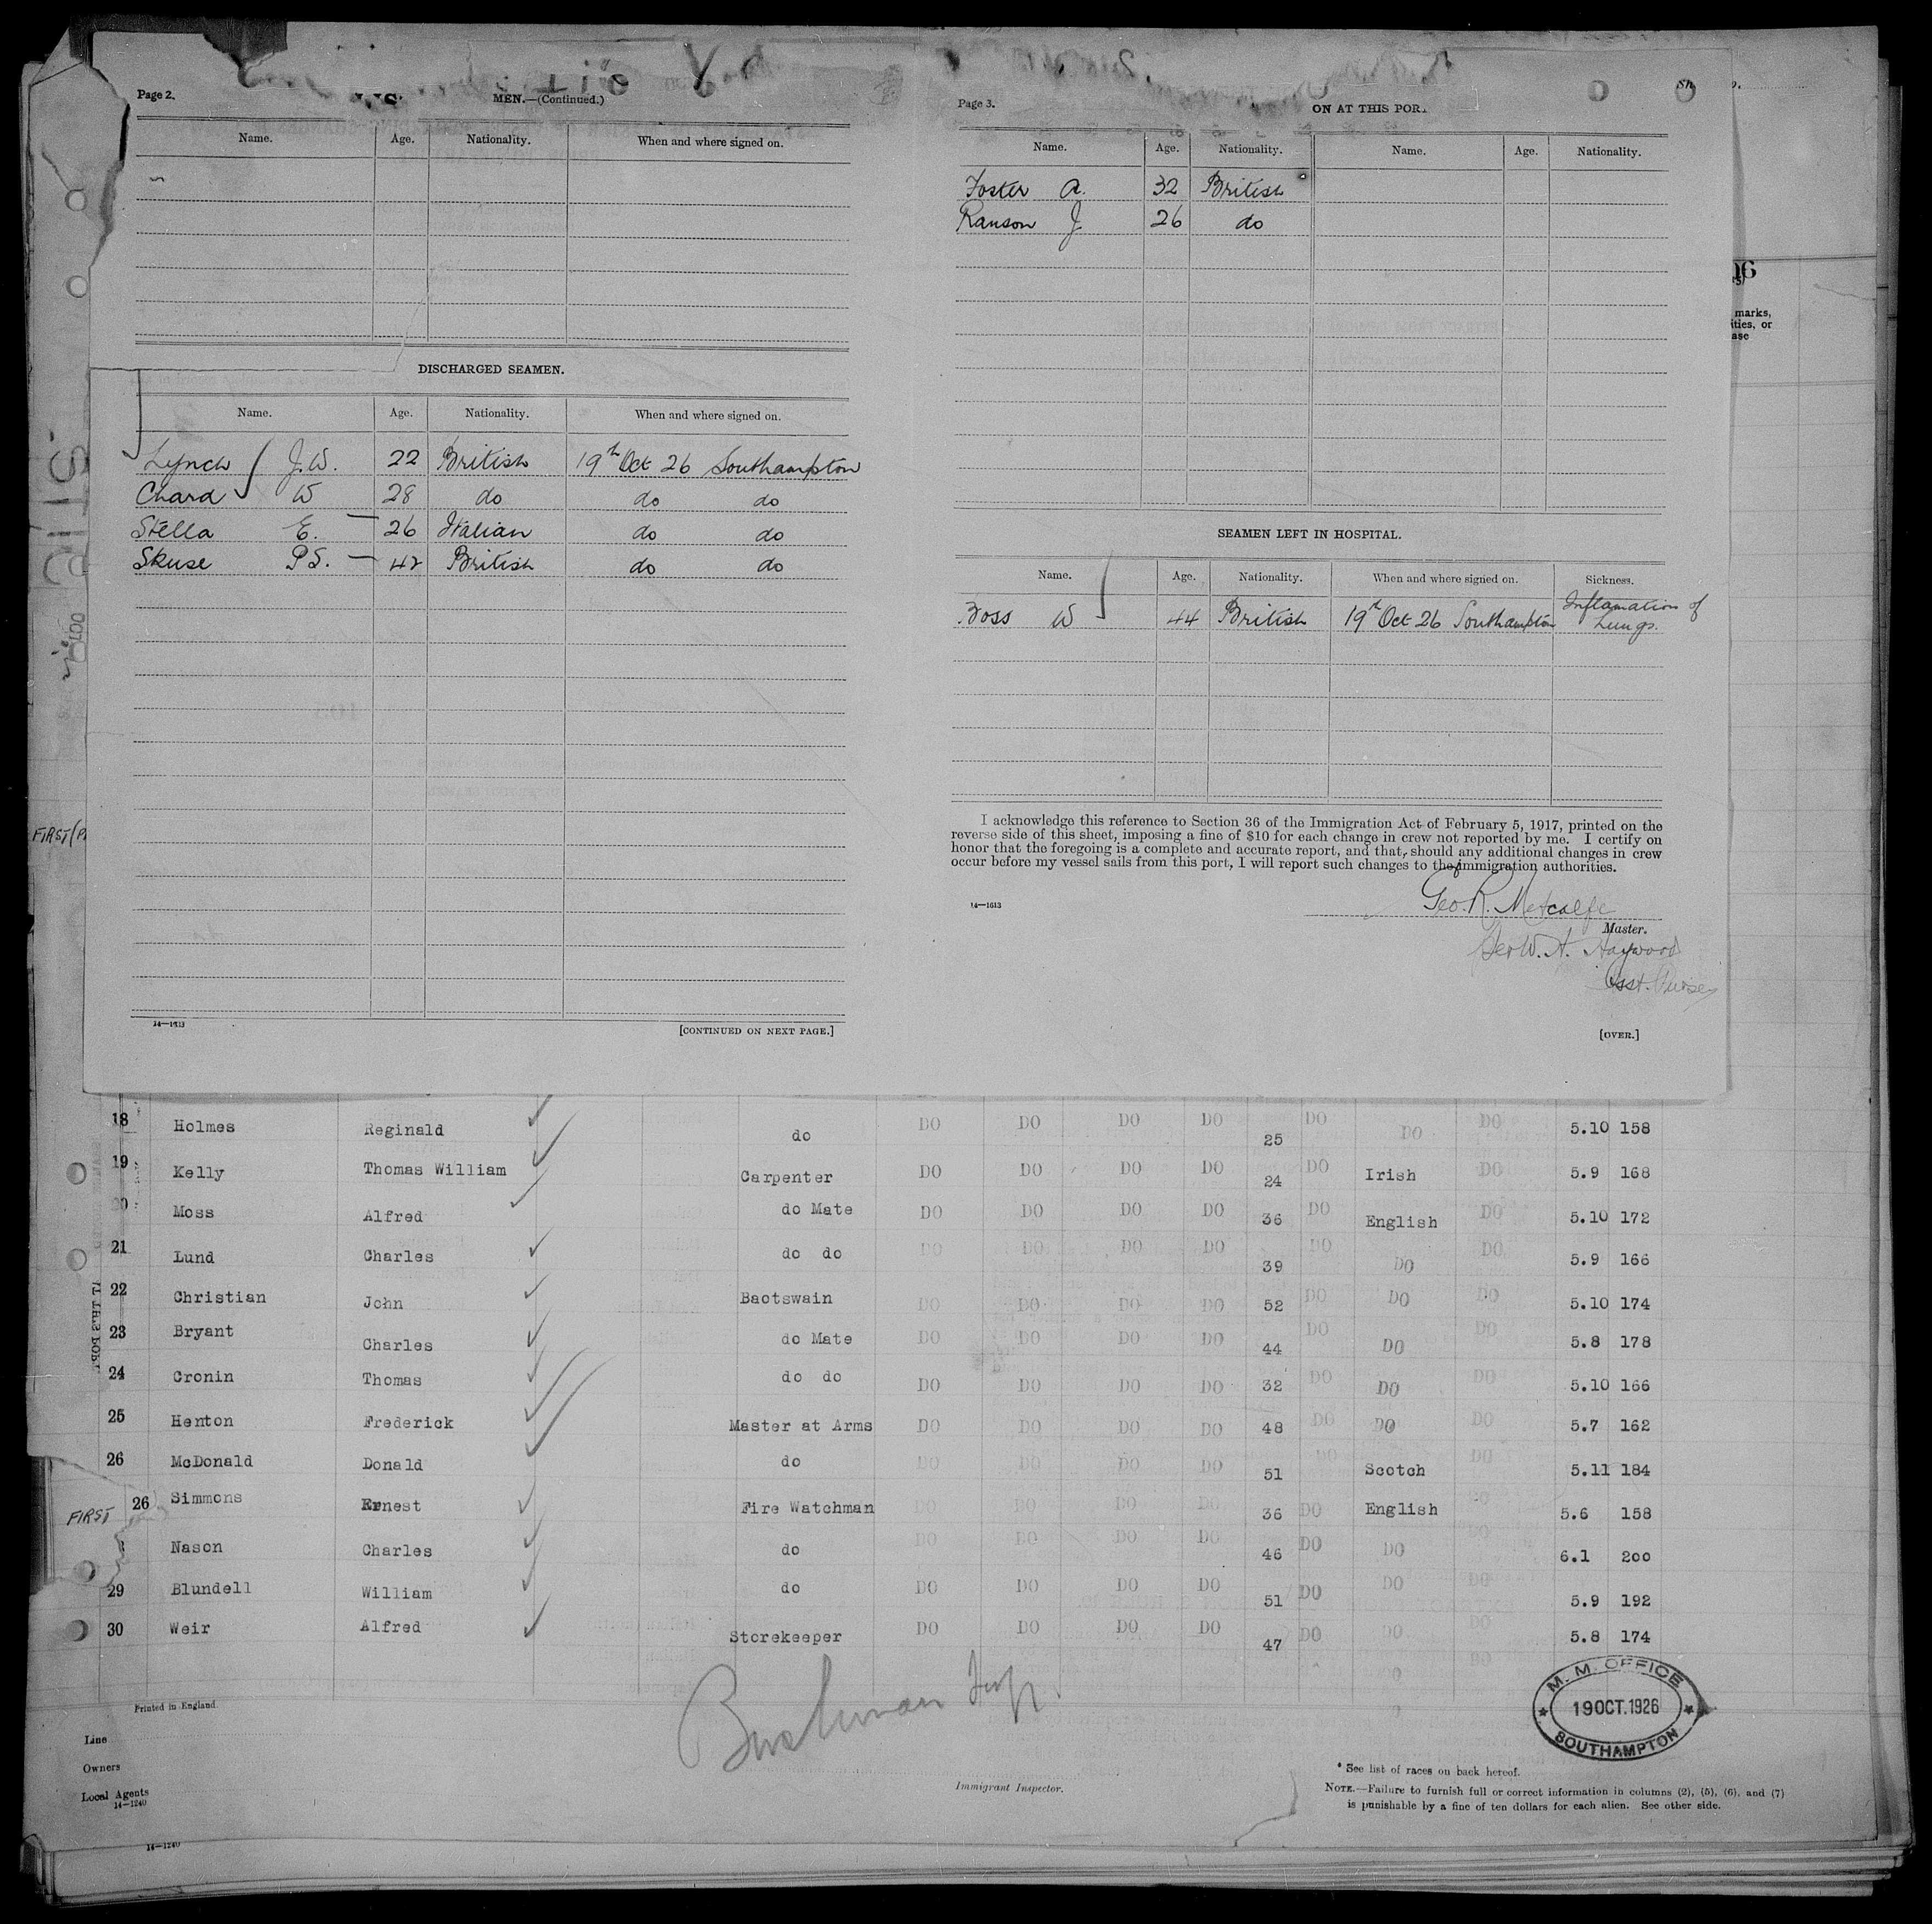 Page 2.
MEN.—(Continued.)
Name. Age. Nationality. When and where signed on.
DISCHARGED SEAMEN.
Name. Age. Nationality. When and where signed on.
Lynch J.W. 22 British 19th Oct 26 Southampton
Chard W 28 do do do
Stella E. 26 Italian do do
Skuse P.S. 42 British do do
14—1613
[CONTINUED ON NEXT PAGE.]
Page 3.
ON AT THIS POR
Name. Age. Nationality. Name. Age. Nationality.
Foster A. 32 British
Ranson J 26 do
SEAMEN LEFT IN HOSPITAL.
Name. Age. Nationality. When and where signed on. Sickness.
W 44 British 19th Oct 26 Southampton Inflamation of
Lungs.
I acknowledge this reference to Section 36 of the Immigration Act of February 5, 1917, printed on the
reverse side of this sheet, imposing a fine of $10 for each change in crew not reported by me. I certify on
honor that the foregoing is a complete and accurate report, and that, should any additional changes in crew
occur before my vessel sails from this port, I will report such changes to the immigration authorities.
14—1613
Geo. R. Metcalfe
Master.
Geo W. A. Haywood
Asst. Purser
[OVER.]
marks,
ities, or
ase
FIRST
18 Holmes Reginald do DO DO DO DO 25 DO DO DO 5.10 158
19 Kelly Thomas William Carpenter DO DO DO DO 24 DO Irish DO 5.9 168
20 Moss Alfred do Mate DO DO DO DO 36 DO English DO 5.10 172
21 Lund Charles do do DO DO DO DO 39 DO DO DO 5.9 166
22 Christian John Baotswain DO DO DO DO 52 DO DO DO 5.10 174
23 Bryant Charles do Mate DO DO DO DO 44 DO DO DO 5.8 178
24 Cronin Thomas do do DO DO DO DO 32 DO DO DO 5.10 166
25 Henton Frederick Master at Arms DO DO DO DO 48 DO DO DO 5.7 162
26 McDonald Donald do DO DO DO DO 51 DO Scotch DO 5.11 184
FIRST 26 Simmons Ernest Fire Watchman DO DO DO DO 36 DO English DO 5.6 158
Nason Charles do DO DO DO DO 46 DO DO DO 6.1 200
29 Blundell William do DO DO DO DO 51 DO DO DO 5.9 192
30 Weir Alfred Storekeeper DO DO DO DO 47 DO DO DO 5.8 174
Printed in England
Line
Owners
Local Agents
14—1240
Insp.
Immigrant Inspector.
M. M. OFFICE
19 OCT. 1926
SOUTHAMPTON
* See list of races on back hereof.
NOTE.—Failure to furnish full or correct information in columns (2), (5), (6), and (7)
is punishable by a fine of ten dollars for each alien. See other side.
14—1240